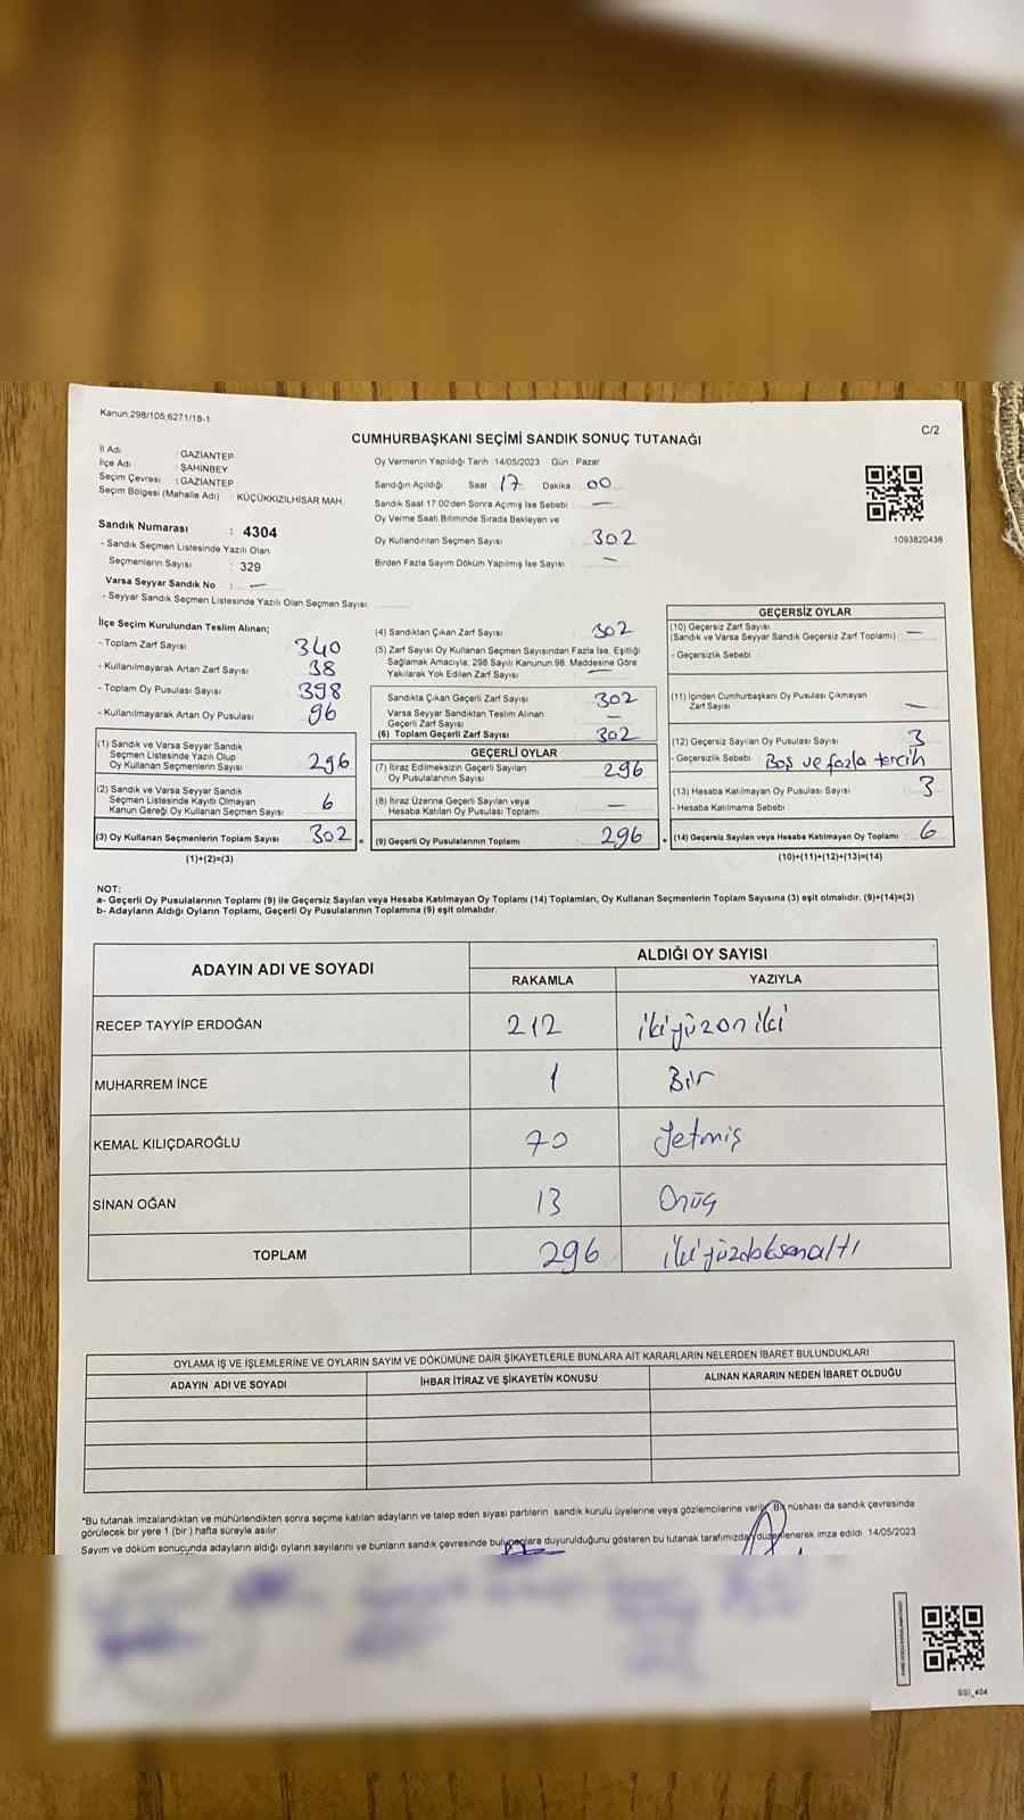 Kanun:298/105;6271/18-1
C/2
CUMHURBAŞKANI SEÇİMİ SANDIK SONUÇ TUTANAĞI
İl Adı : GAZİANTEP
İlçe Adı : ŞAHİNBEY
Seçim Çevresi : GAZİANTEP
Seçim Bölgesi (Mahalle Adı) : KÜÇÜKKIZILHİSAR MAH.
Sandık Numarası : 4304
- Sandık Seçmen Listesinde Yazılı Olan
Seçmenlerin Sayısı : 329
Varsa Seyyar Sandık No : —
- Seyyar Sandık Seçmen Listesinde Yazılı Olan Seçmen Sayısı
Oy Vermenin Yapıldığı Tarih :14/05/2023 Gün : Pazar
Sandığın Açıldığı Saat 17 Dakika 00
Sandık Saat 17:00'den Sonra Açımış İse Sebebi —
Oy Verme Saati Bitiminde Sırada Bekleyen ve
Oy Kullandırılan Seçmen Sayısı 302
Birden Fazla Sayım Döküm Yapılmış İse Sayısı —
1093820436
İlçe Seçim Kurulundan Teslim Alınan;
- Toplam Zarf Sayısı 340
- Kullanılmayarak Artan Zarf Sayısı 38
- Toplam Oy Pusulası Sayısı 398
- Kullanılmayarak Artan Oy Pusulası 96
(1) Sandık ve Varsa Seyyar Sandık
Seçmen Listesinde Yazılı Olup
Oy Kullanan Seçmenlerin Sayısı 296
(2) Sandık ve Varsa Seyyar Sandık
Seçmen Listesinde Kayıtlı Olmayan
Kanun Gereği Oy Kullanan Seçmen Sayısı 6
(3) Oy Kullanan Seçmenlerin Toplam Sayısı 302
(1)+(2)=(3)
(4) Sandıktan Çıkan Zarf Sayısı 302
(5) Zarf Sayısı Oy Kullanan Seçmen Sayısından Fazla İse, Eşitliği
Sağlamak Amacıyla, 298 Sayılı Kanunun 98. Maddesine Göre
Yakılarak Yok Edilen Zarf Sayısı —
Sandıkta Çıkan Geçerli Zarf Sayısı 302
Varsa Seyyar Sandıktan Teslim Alınan
Geçerli Zarf Sayısı —
(6) Toplam Geçerli Zarf Sayısı 302
GEÇERLİ OYLAR
(7) İtiraz Edilmeksizin Geçerli Sayılan
Oy Pusulalarının Sayısı 296
(8) İtiraz Üzerine Geçerli Sayılan veya
Hesaba Katılan Oy Pusulası Toplamı —
(9) Geçerli Oy Pusulalarının Toplamı 296
GEÇERSİZ OYLAR
(10) Geçersiz Zarf Sayısı —
(Sandık ve Varsa Seyyar Sandık Geçersiz Zarf Toplamı)
- Geçersizlik Sebebi
(11) İçinden Cumhurbaşkanı Oy Pusulası Çıkmayan
Zarf Sayısı —
(12) Geçersiz Sayılan Oy Pusulası Sayısı 3
- Geçersizlik Sebebi Boş ve fazla tercih
(13) Hesaba Katılmayan Oy Pusulası Sayısı 3
- Hesaba Katılmama Sebebi
(14) Geçersiz Sayılan veya Hesaba Katılmayan Oy Toplamı 6
(10)+(11)+(12)+(13)=(14)
NOT:
a- Geçerli Oy Pusulalarının Toplamı (9) ile Geçersiz Sayılan veya Hesaba Katılmayan Oy Toplamı (14) Toplamları, Oy Kullanan Seçmenlerin Toplam Sayısına (3) eşit olmalıdır. (9)+(14)=(3)
b- Adayların Aldığı Oyların Toplamı, Geçerli Oy Pusulalarının Toplamına (9) eşit olmalıdır.
ADAYIN ADI VE SOYADI
ALDIĞI OY SAYISI
RAKAMLA YAZIYLA
RECEP TAYYİP ERDOĞAN 212 ikiyüzon iki
MUHARREM İNCE 1 Bir
KEMAL KILIÇDAROĞLU 70 Yetmiş
SİNAN OĞAN 13 Onüç
TOPLAM 296 ikiyüzdoksanaltı
OYLAMA İŞ VE İŞLEMLERİNE VE OYLARIN SAYIM VE DÖKÜMÜNE DAİR ŞİKAYETLERLE BUNLARA AİT KARARLARIN NELERDEN İBARET BULUNDUKLARI
ADAYIN ADI VE SOYADI İHBAR İTİRAZ VE ŞİKAYETİN KONUSU ALINAN KARARIN NEDEN İBARET OLDUĞU
*Bu tutanak imzalandıktan ve mühürlendikten sonra seçime katılan adayların ve talep eden siyasi partilerin sandık kurulu üyelerine veya gözlemcilerine verilir. Bir nüshası da sandık çevresinde
görülecek bir yere 1 (bir ) hafta süreyle asılır.
Sayım ve döküm sonucunda adayların aldığı oyların sayılarını ve bunların sandık çevresinde bulunanlara duyurulduğunu gösteren bu tutanak tarafımızda düzenlenerek imza edildi. 14/05/2023